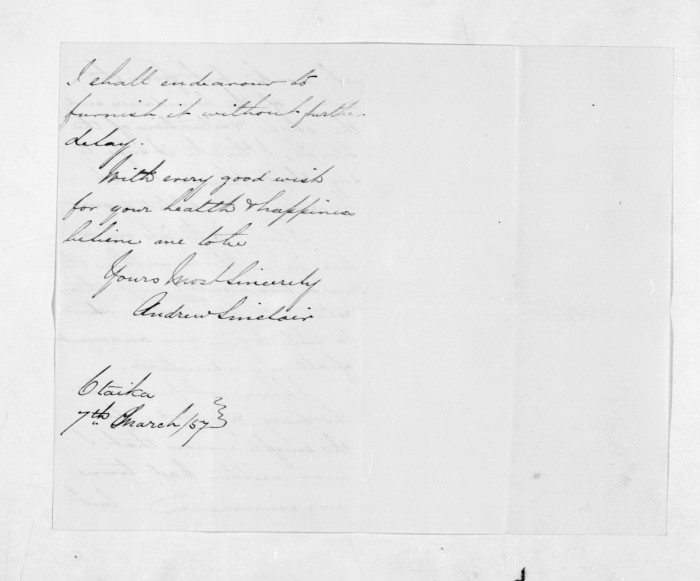 I shall endeavour to
furnish it without further
delay.
With every good wish
for your health & happiness
believe me to be
Yours Most Sincerely
Andrew Sinclair
Otaika
7th March /57